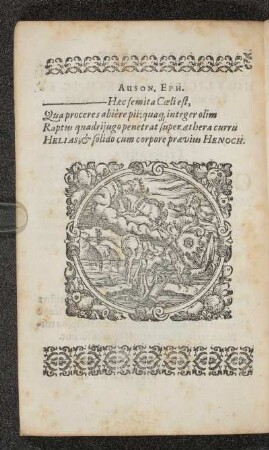 AUSON. EPH.
Hæc semita Cæli est,
Qua proceres abiere pii: quaq, integer olim
Raptus quadrijugo penetrat super æthera curru
HELIAS, & solido cum corpore prævius HENOCH.